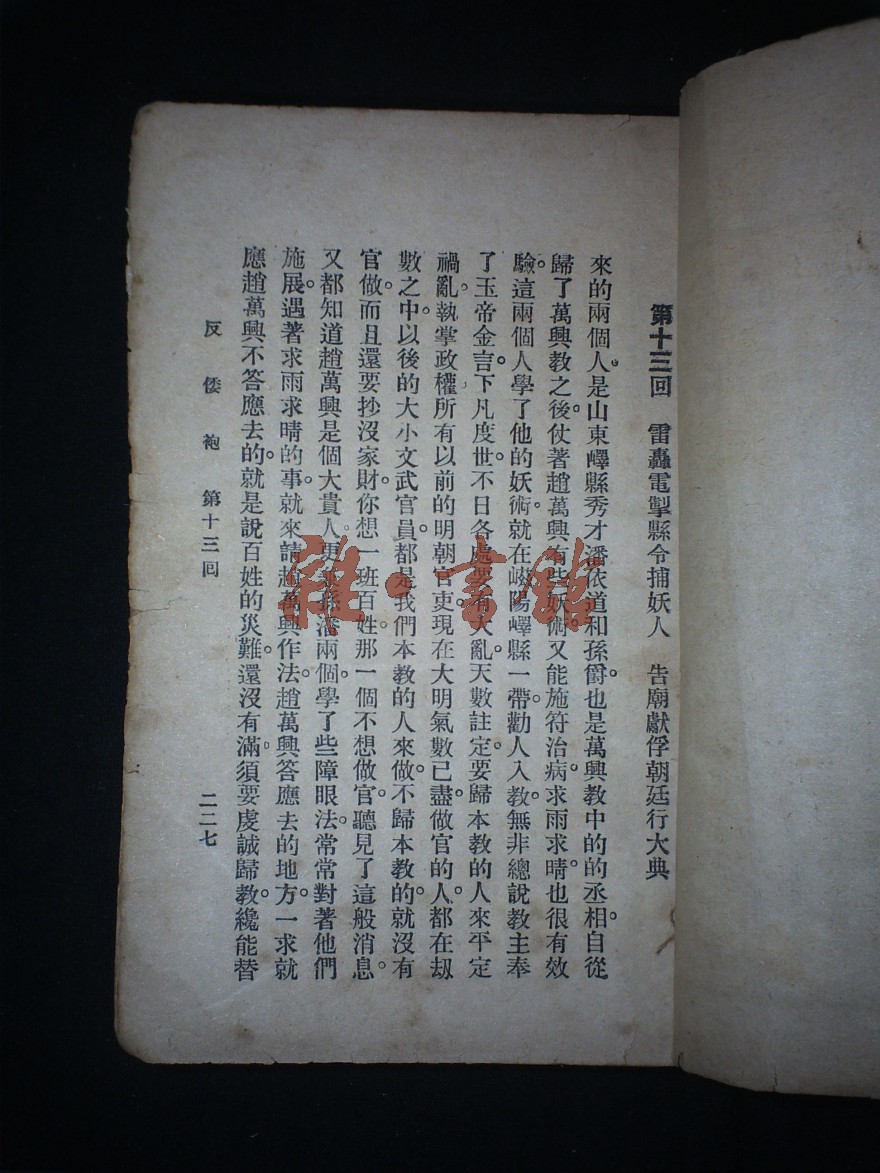 第十三回 雷轟電掣縣令捕妖人 告廟獻俘朝廷行大典
來的兩個人。是山東嶧縣秀才潘依道和孫爵。也是萬興教中的的丞相。自從
歸了萬興教之後。仗著趙萬興有些妖術。又能施符治病。求雨求晴。也很有效
驗。這兩個人學了他的妖術。就在嶧陽嶧縣一帶。勸人入教。無非總說教主奉
了玉帝金言。下凡度世。不日各處要有大亂。天數註定。要歸本教的人來平定
禍亂。執掌政權。所有以前的明朝官吏。現在大明氣數已盡。做官的人。都在刼
數之中。以後的大小文武官員。都是我們本教的人來做。不歸本教的。就沒有
官做。而且還要抄沒家財。你想一班百姓。那一個不想做官。聽見了這般消息。
又都知道趙萬興是個大貴人。更兼孫潘兩個。學了些障眼法。常常對著他們
施展。遇著求雨求晴的事。就來請趙萬興作法。趙萬興答應去的地方。一求就
應。趙萬興不答應去的。就是說百姓的災難。還沒有滿。須要虔誠歸教。纔能替
反倭袍 第十三回 二二七
雜·書館